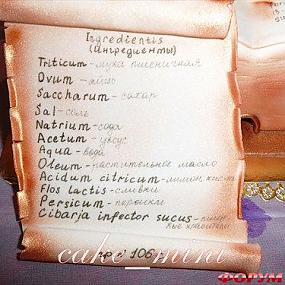 Ingredientis
(ингредиенты)
Triticum - мука пшеничная
Ovum - яйцо
Saccharum - сахар
Sal - соль
Natrium - сода
Acetum - уксус
Aqua - вода
Oleum - растительное масло
Acidum citricum - лимон. кислота
Flos lactis - сливки
Persicum - персики
Cibarja infector sucus - пищевые красители
106
cake_mini
ФОРУМ